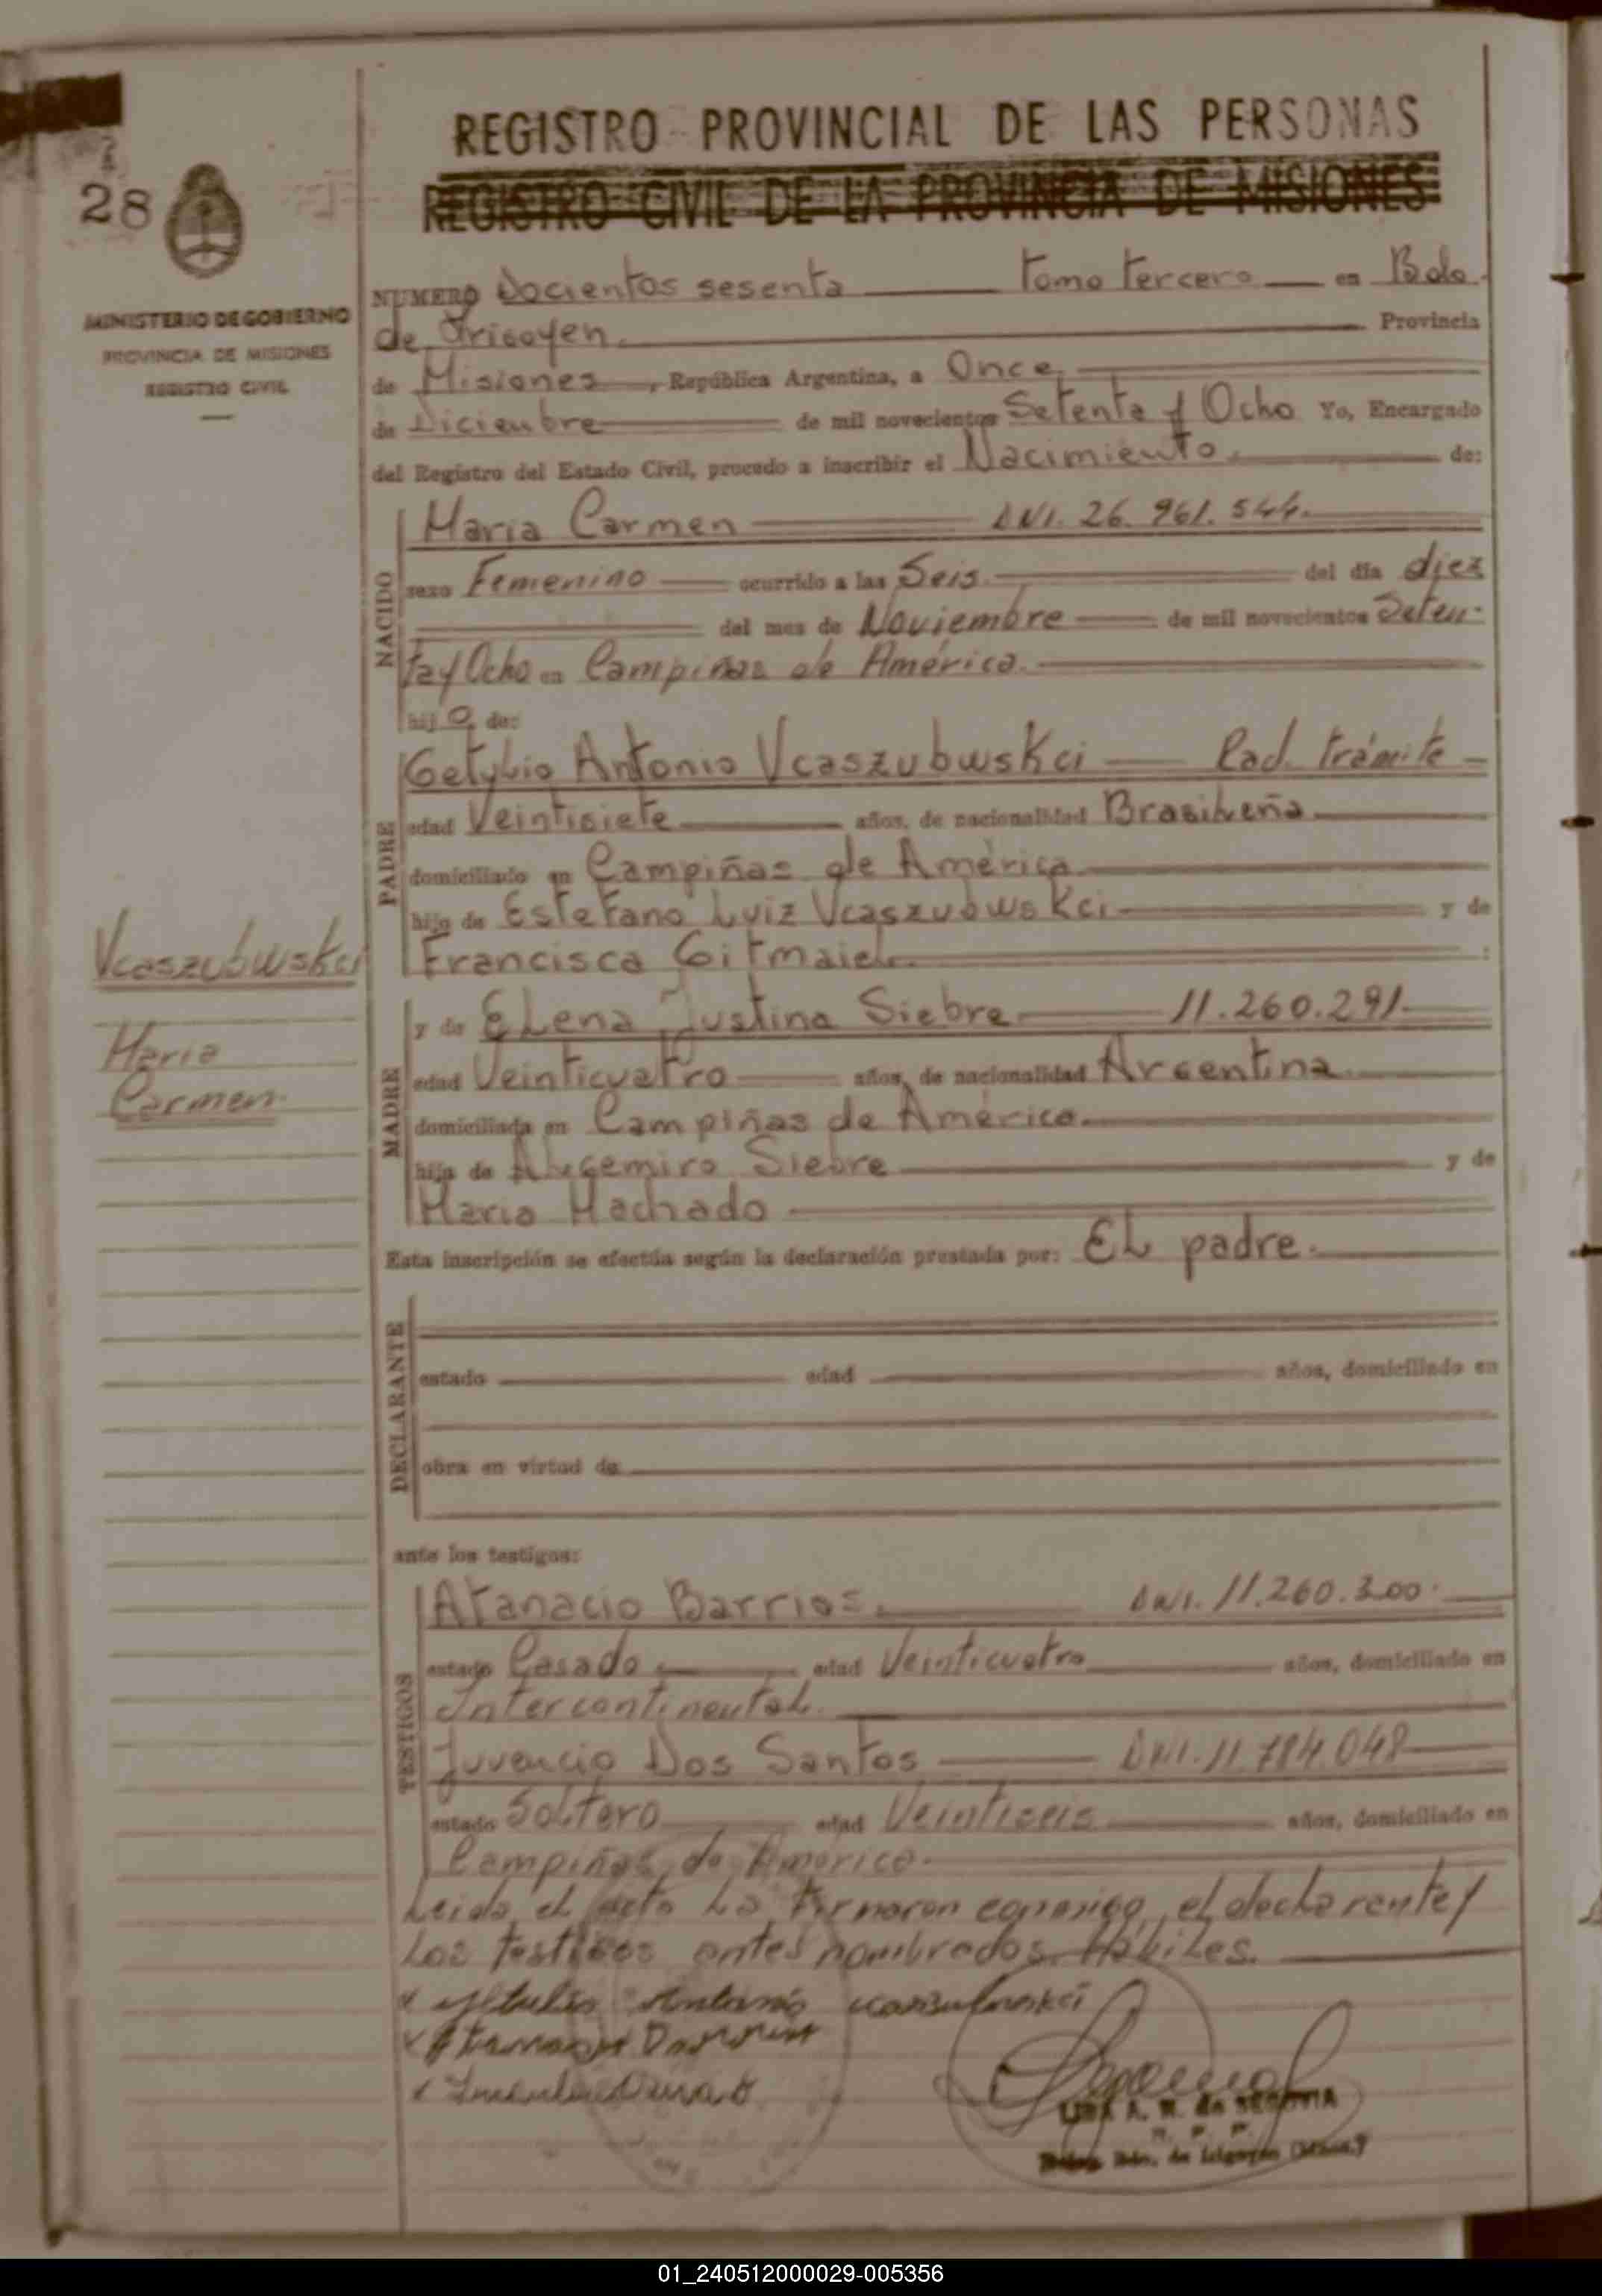 28
MINISTERIO DE GOBIERNO
PROVINCIA DE MISIONES
REGISTRO CIVIL
REGISTRO PROVINCIAL DE LAS PERSONAS
REGISTRO CIVIL DE LA PROVINCIA DE MISIONES
NUMERO Docientos sesenta tomo tercero en Bdo.
de Irigoyen. Provincia
de Misiones, República Argentina, a Once
de Diciembre de mil novecientos Setenta y Ocho Yo, Encargado
del Registro del Estado Civil, procedo a inscribir el Nacimiento. de:
NACIDO
Maria Carmen DNI. 26.961.544.
sexo Femenino ocurrido a las Seis. del día diez
del mes de Noviembre de mil novecientos Seten-
ta y Ocho en Campiñas de América.
hija de:
PADRE
Getulio Antonio Vcaszubwskci Rad. trámite
edad Veintisiete años, de nacionalidad Brasileña
domiciliado en Campiñas de América
hijo de Estefano Luiz Vcaszubwskci y de
Francisca
Vcaszubwskci
Maria
Carmen.
MADRE
y de Elena Justina Siebre 11.260.291.
edad Veinticuatro años, de nacionalidad Argentina
domiciliada en Campiñas de América.
hija de Algemiro Siebre y de
Maria Machado
Esta inscripción se efectúa según la declaración prestada por: El padre.
DECLARANTE
estado edad años, domiciliado en
obra en virtud de
ante los testigos:
TESTIGOS
Atanacio Barrios. DNI. 11.260.300.
estado Casado edad Veinticuatro años, domiciliado en
Intercontinental.
Juvencio Dos Santos DNI. 11.784.048
estado Soltero edad Veintiseis años, domiciliado en
Campiñas de América.
Leida el acta la firmaron conmigo, el declarante y
los testigos antes nombrados. Hábiles.
Antonio
LIDA A. R. de SEGOVIA
01_240512000029-005356